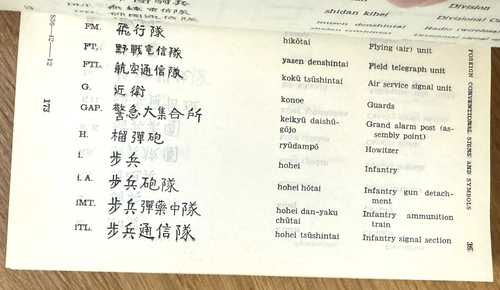 shidan kihei Division
musen denshintai
FM. 飛行隊 hikōtai Flying (air) unit
FT. 野戰電信隊 yasen denshintai Field telegraph unit
FTL. 航空通信隊 kokū tsūshintai Air service signal unit
G. 近衛 konoe Guards
GAP. 警急大集合所 keikyū daishū- Grand alarm post (as-
gōjo sembly point)
H. 榴彈砲 ryūdampō Howitzer
i. 步兵 hohei Infantry
i. A. 步兵砲隊 hohei hōtai Infantry gun detach-
ment
iMT. 步兵彈藥中隊 hohei dan-yaku Infantry ammunition
chūtai train
iTL. 步兵通信隊 hohei tsūshintai Infantry signal section
173
FOREIGN CONVENTIONAL SIGNS AND SYMBOLS